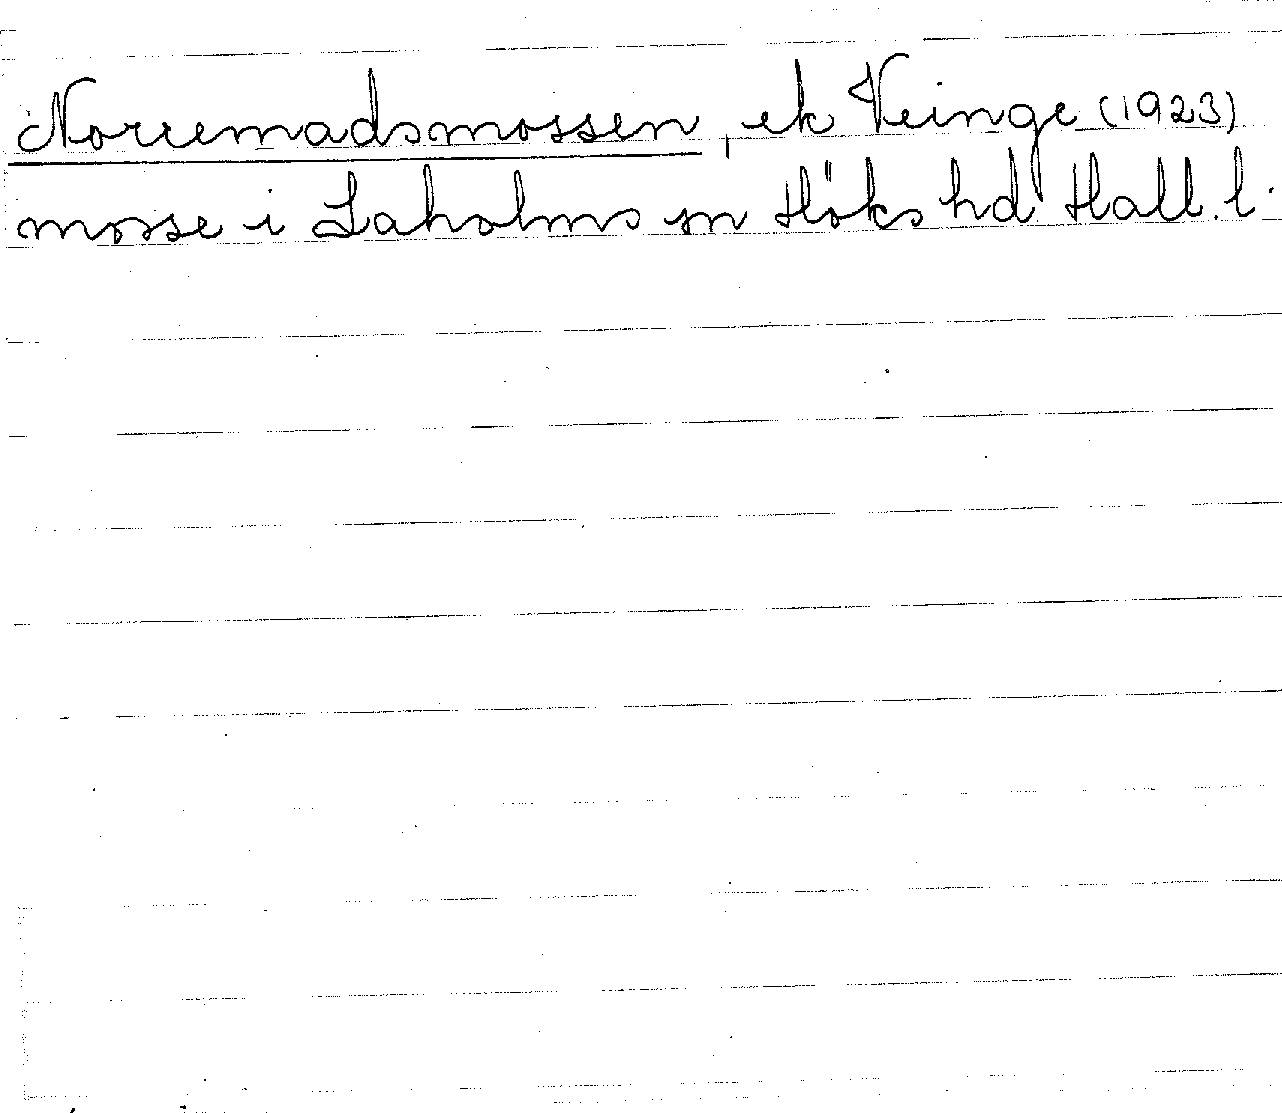 Norremadsmossen, ek Veinge (1923)
mosse i Laholms sn Höks hd Hall. l.